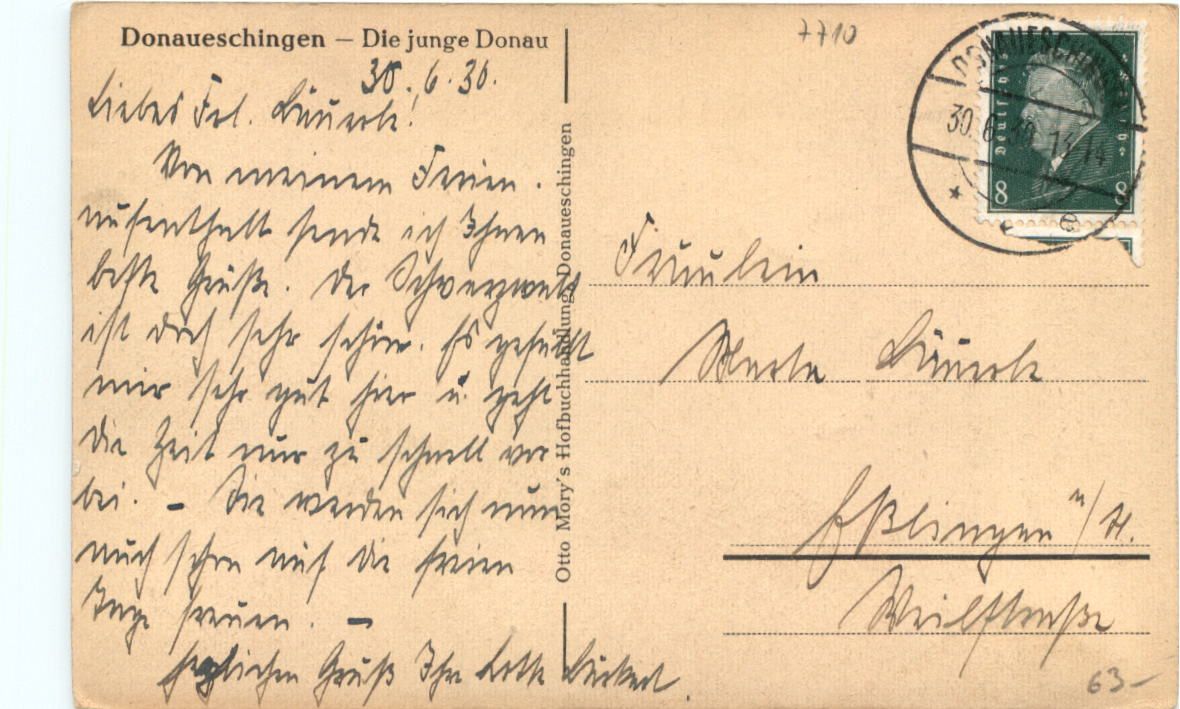 7710
Donaueschingen – Die junge Donau
30.6.30.
Liebes Frl. Bäuerle!
Von meinem Ferien-
aufenthalt sende ich Ihnen
beste Grüße. Der Schwarzwald
ist doch sehr schön. Es gefällt
mir sehr gut hier u. geht
die Zeit nur zu schnell vor
bei. – Sie werden sich nun
auch schon auf die freien
Tage freuen. –
Herzlichen Gruß Ihre Lotte
Otto Mory's Hofbuchhandlung Donaueschingen
DONAUESCHINGEN
30.6.30. 13-14
Deutsches Reich
8 8
Fräulein
Bäuerle
Eßlingen a/N.
Weilstraße
63–